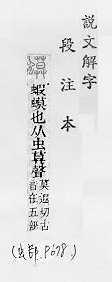 說文解字
段注本
蝦蟆也从虫莫聲
莫遐切古
音在五部
(虫部, P.678)